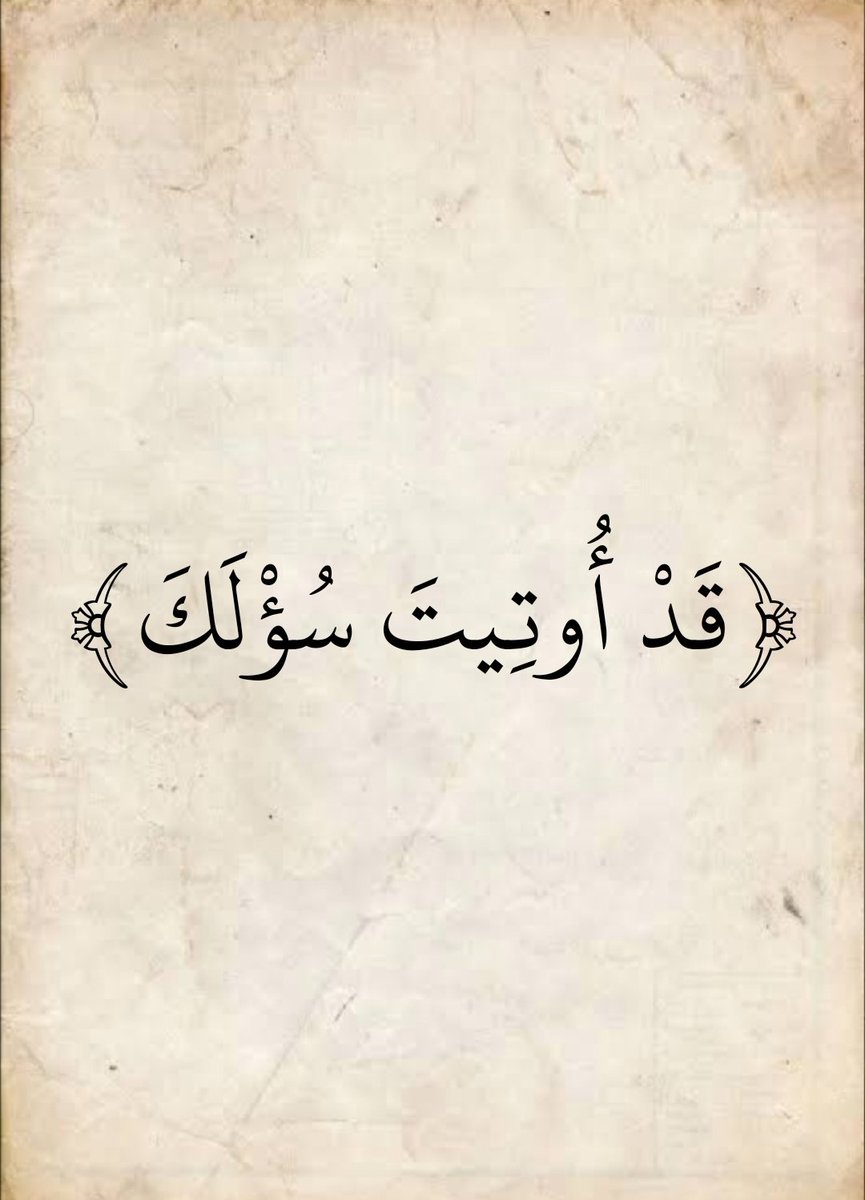 ﴿ قَدْ أُوتِيتَ سُؤْلَكَ ﴾